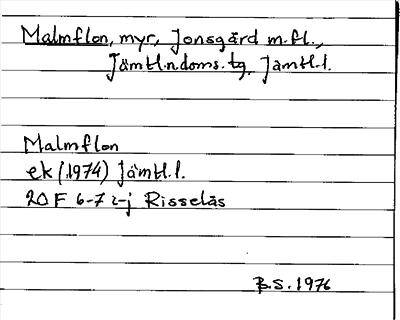 Malmflon, myr, Jonsgård m.fl.,
Jämtl.n.doms.tg, Jämtl.l.
Malmflon
ek (1974) Jämtl.l.
20 F 6-7 i-j Risselås
B.S. 1976